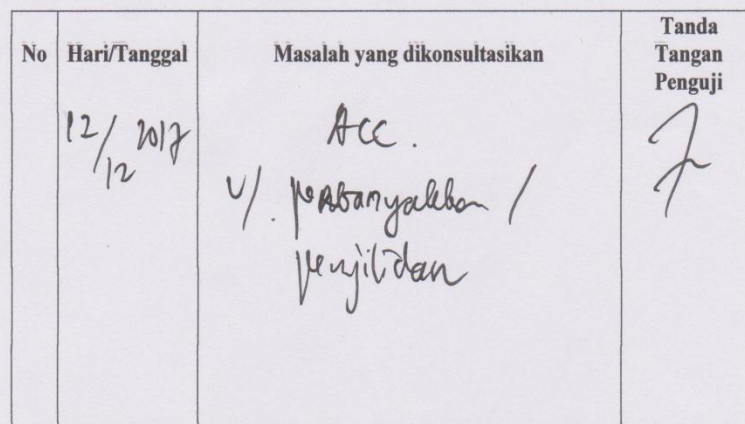 No Hari/Tanggal Masalah yang dikonsultasikan Tanda Tangan Penguji
12/12 2017 ACC.
u/. perbanyakkan /
penjilidan